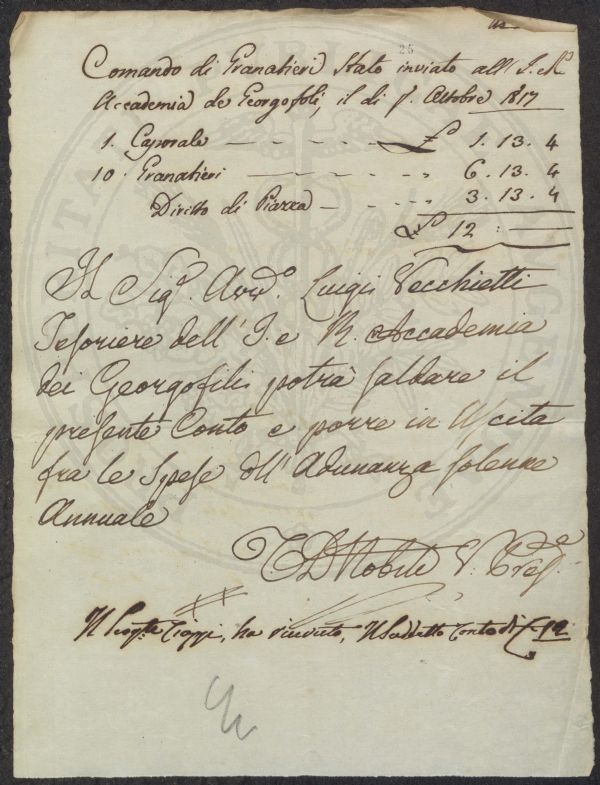 25
Comando di Granatieri Stato inviato all' I. R.
Accademia de Georgofoli, il di p. Ottobre 1817
1. Caporale — £ 1. 13. 4
10. Granatieri — „ 6. 13. 4
Diritto di Piazza — „ 3. 13. 4
£ 12 : —
Il Sig. Avv.º Luigi Vecchietti
Tesoriere dell' I. e R. Accademia
dei Georgofili potrà saldare il
presente Conto e porre in Uscita
fra le Spese dell' Adunanza solenne
Annuale
Nobili V. Pres.e
Il Sergte Cioppi, ha ricevuto, Il Sudetto Conto di £ 12